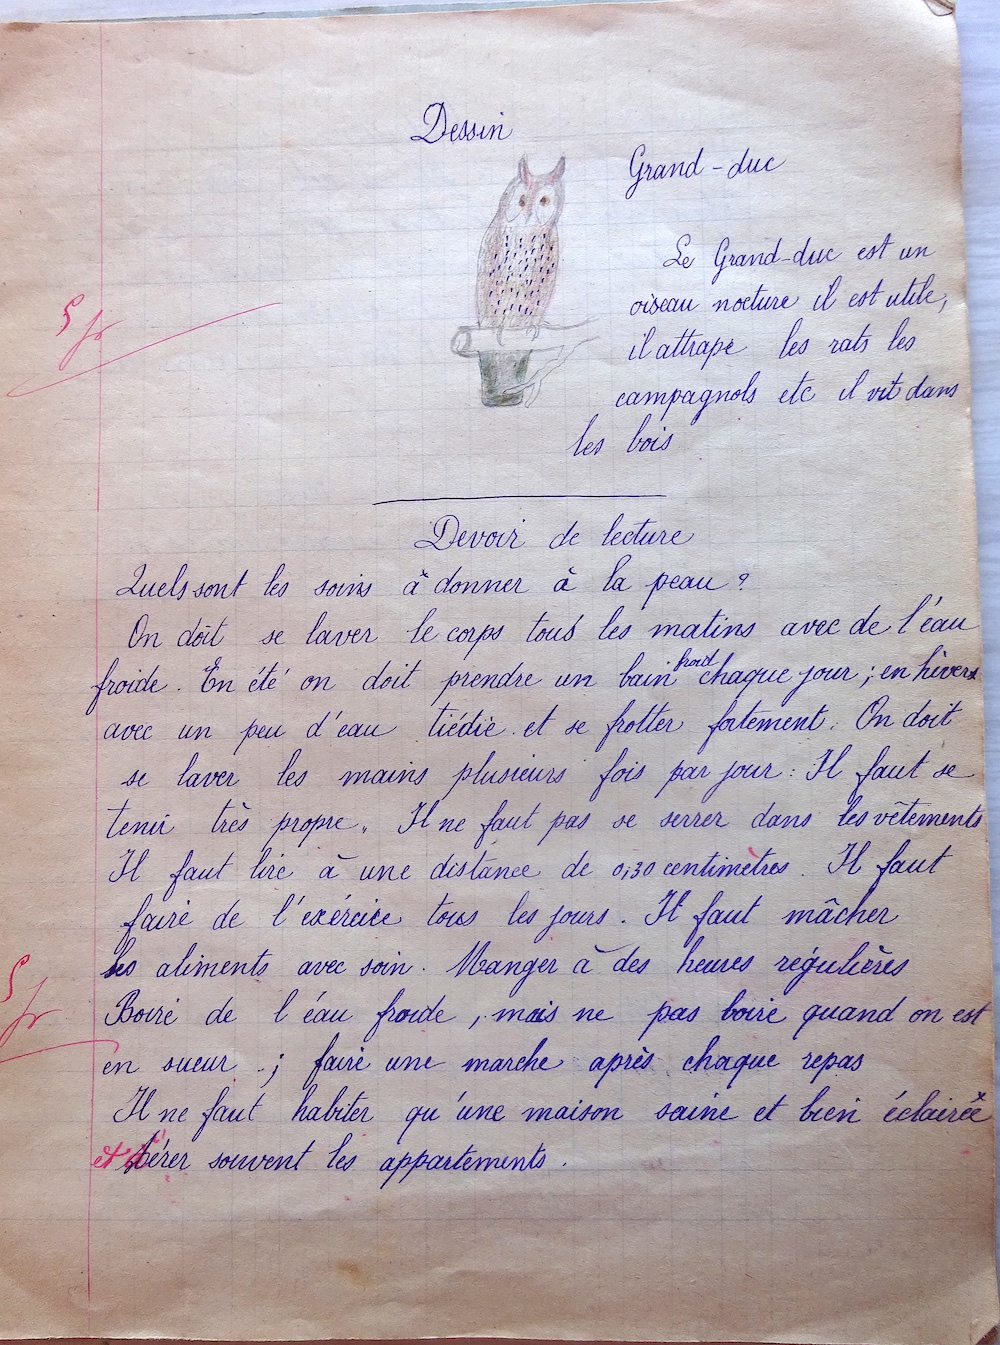 Dessin
Grand-duc
Le Grand-duc est un
oiseau nocture il est utile,
il attrape les rats les
campagnols etc il vit dans
les bois
Devoir de lecture
Quels sont les soins à donner à la peau ?
On doit se laver le corps tous les matins avec de l'éau
froide. En été on doit prendre un bain froid chaque jour ; en hivers
avec un peu d'eau tiédie et se frotter fortement. On doit
se laver les mains plusieurs fois par jour : Il faut se
tenir très propre. Il ne faut pas se serrer dans les vêtements
Il faut lire à une distance de 0,30 centimètres. Il faut
faire de l'exércice tous les jours. Il faut mâcher
les aliments avec soin. Manger à des heures régulières
Boire de l'éau froide, mais ne pas boire quand on est
en sueur . ; faire une marche après chaque repas
Il ne faut habiter qu'une maison saine et bien éclairée
et souvent les appartements.